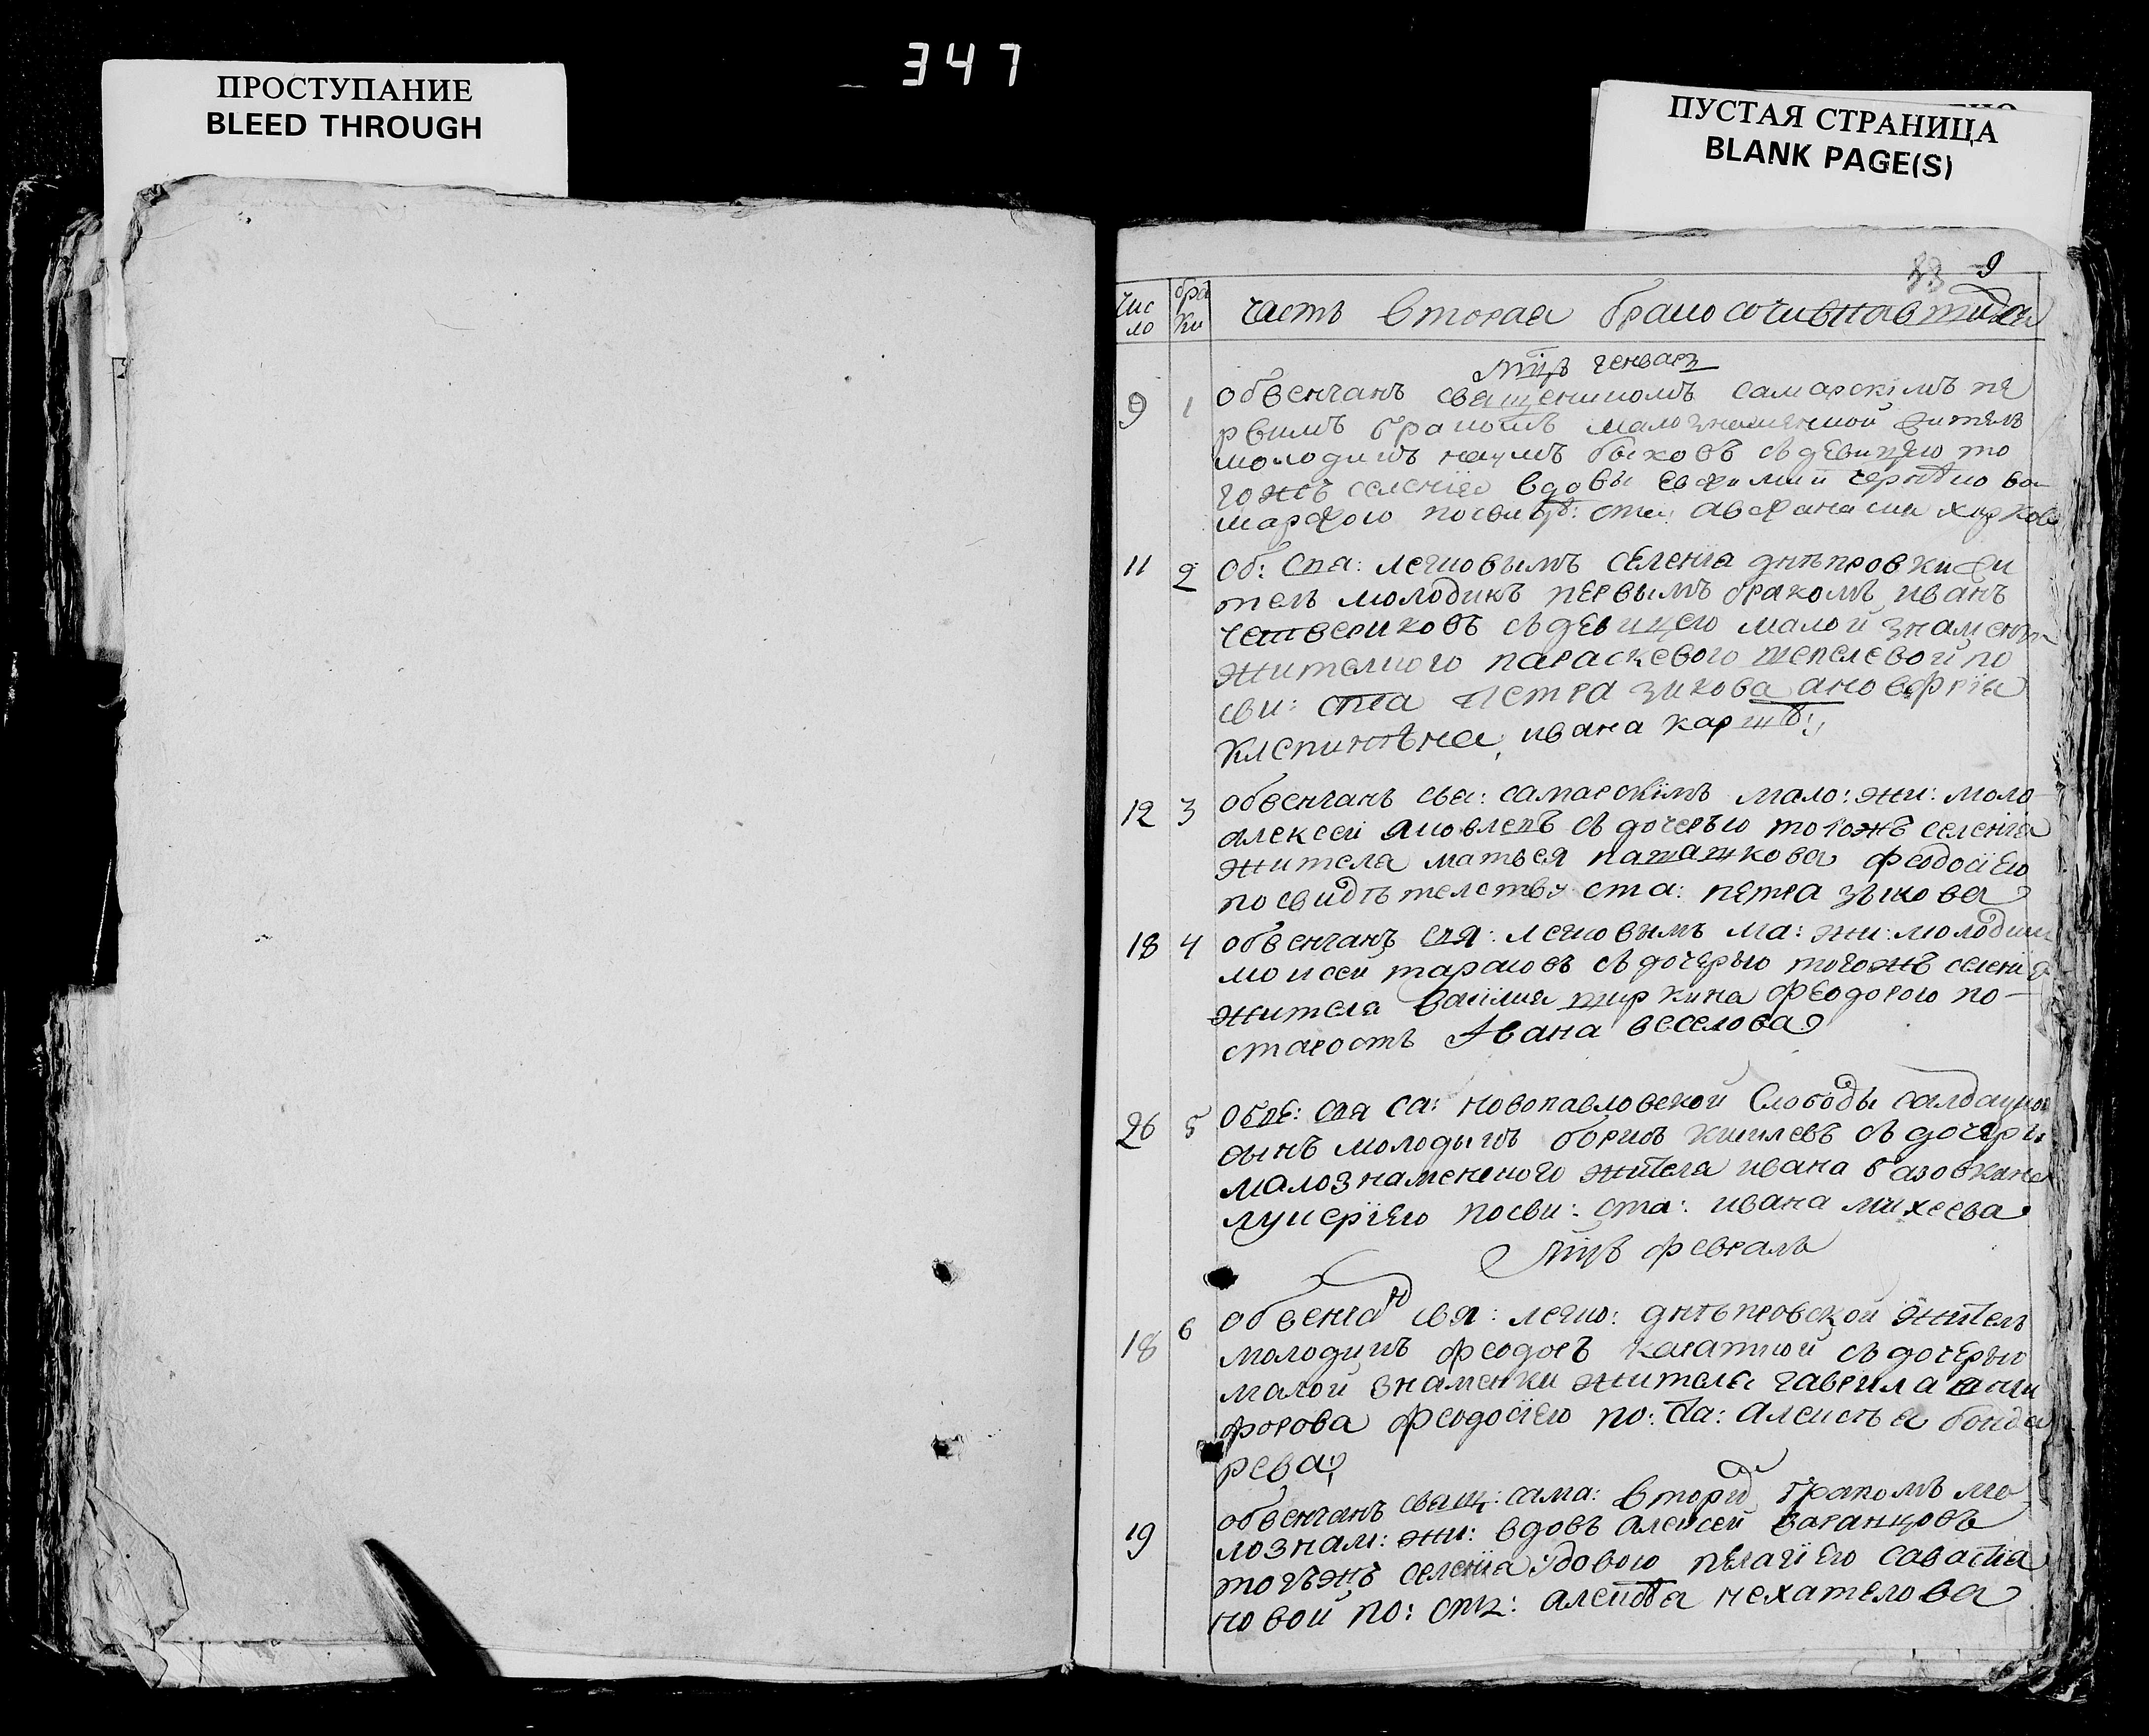 347
ПРОСТУПАНИЕ
BLEED THROUGH
ПУСТАЯ СТРАНИЦА
BLANK PAGE(S)
9
Чис
ло
бра
ки
часть вторая
мцъ генварь
9 1 обвенчанъ священикомъ самарскимъ пе
рвимъ бракомъ малознаменкой житель
молодикъ наумъ быковъ съ девицею то
гожъ селенїя вдовы
11 2 об: свя: легковымъ селенїа днѣпровки жи
тель молодикъ первымъ бракомъ иванъ
четвериковъ съ девицею малой знаменки
параскевою шепелевой по
сви: ста петра зикова
ивана
12 3 обвенчанъ свя: самарскїмъ мало: жи: моло
алексей яковлевъ съ дочерью тогожъ селенїа
жителя матвея феодосїею
по свидѣтелству ста: петра зыкова
18 4 обвенчанъ свя: легковымъ ма: жи: молодик
моисей тарасовъ съ дочерью тогожъ селенїя
жителя василия феодорою по
старостѣ Ивана веселова
26 5 свя са: новопавловской Слободы
сынъ молодикъ борисъ киселевъ съ дочерью
малознаменкого жителя ивана
лукерїею посви: ста: ивана михеева
мцъ февраль
18 6 обвенчан свя: легко: днѣпровской житель
молодикъ феодоръ съ дочерью
малой знаменки жителя гаврила
форова феодосїею по: ста: алексѣя бонда
рева
19 обвенчанъ свящ: сама: вторы бракомъ ма
лознам: жи: вдовъ алексей
тогъжъ селенїа вдовою пелагїею савастїа
новой по: ста: алексѣя нехателова